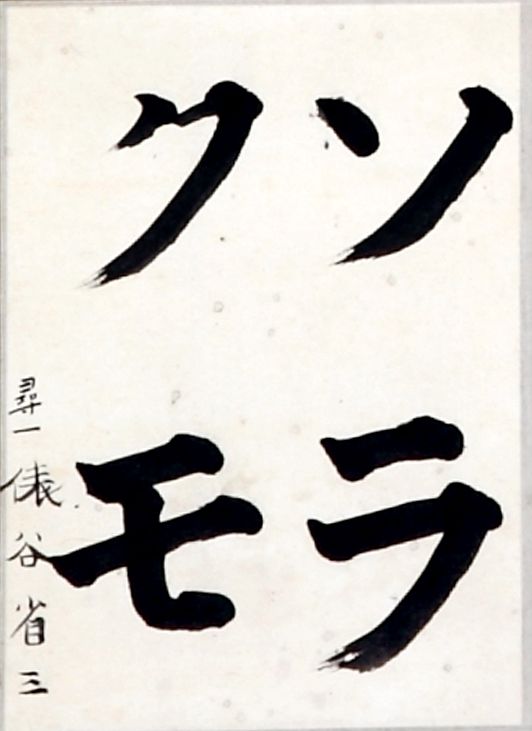 ソラ
クモ
尋一 俵谷省三